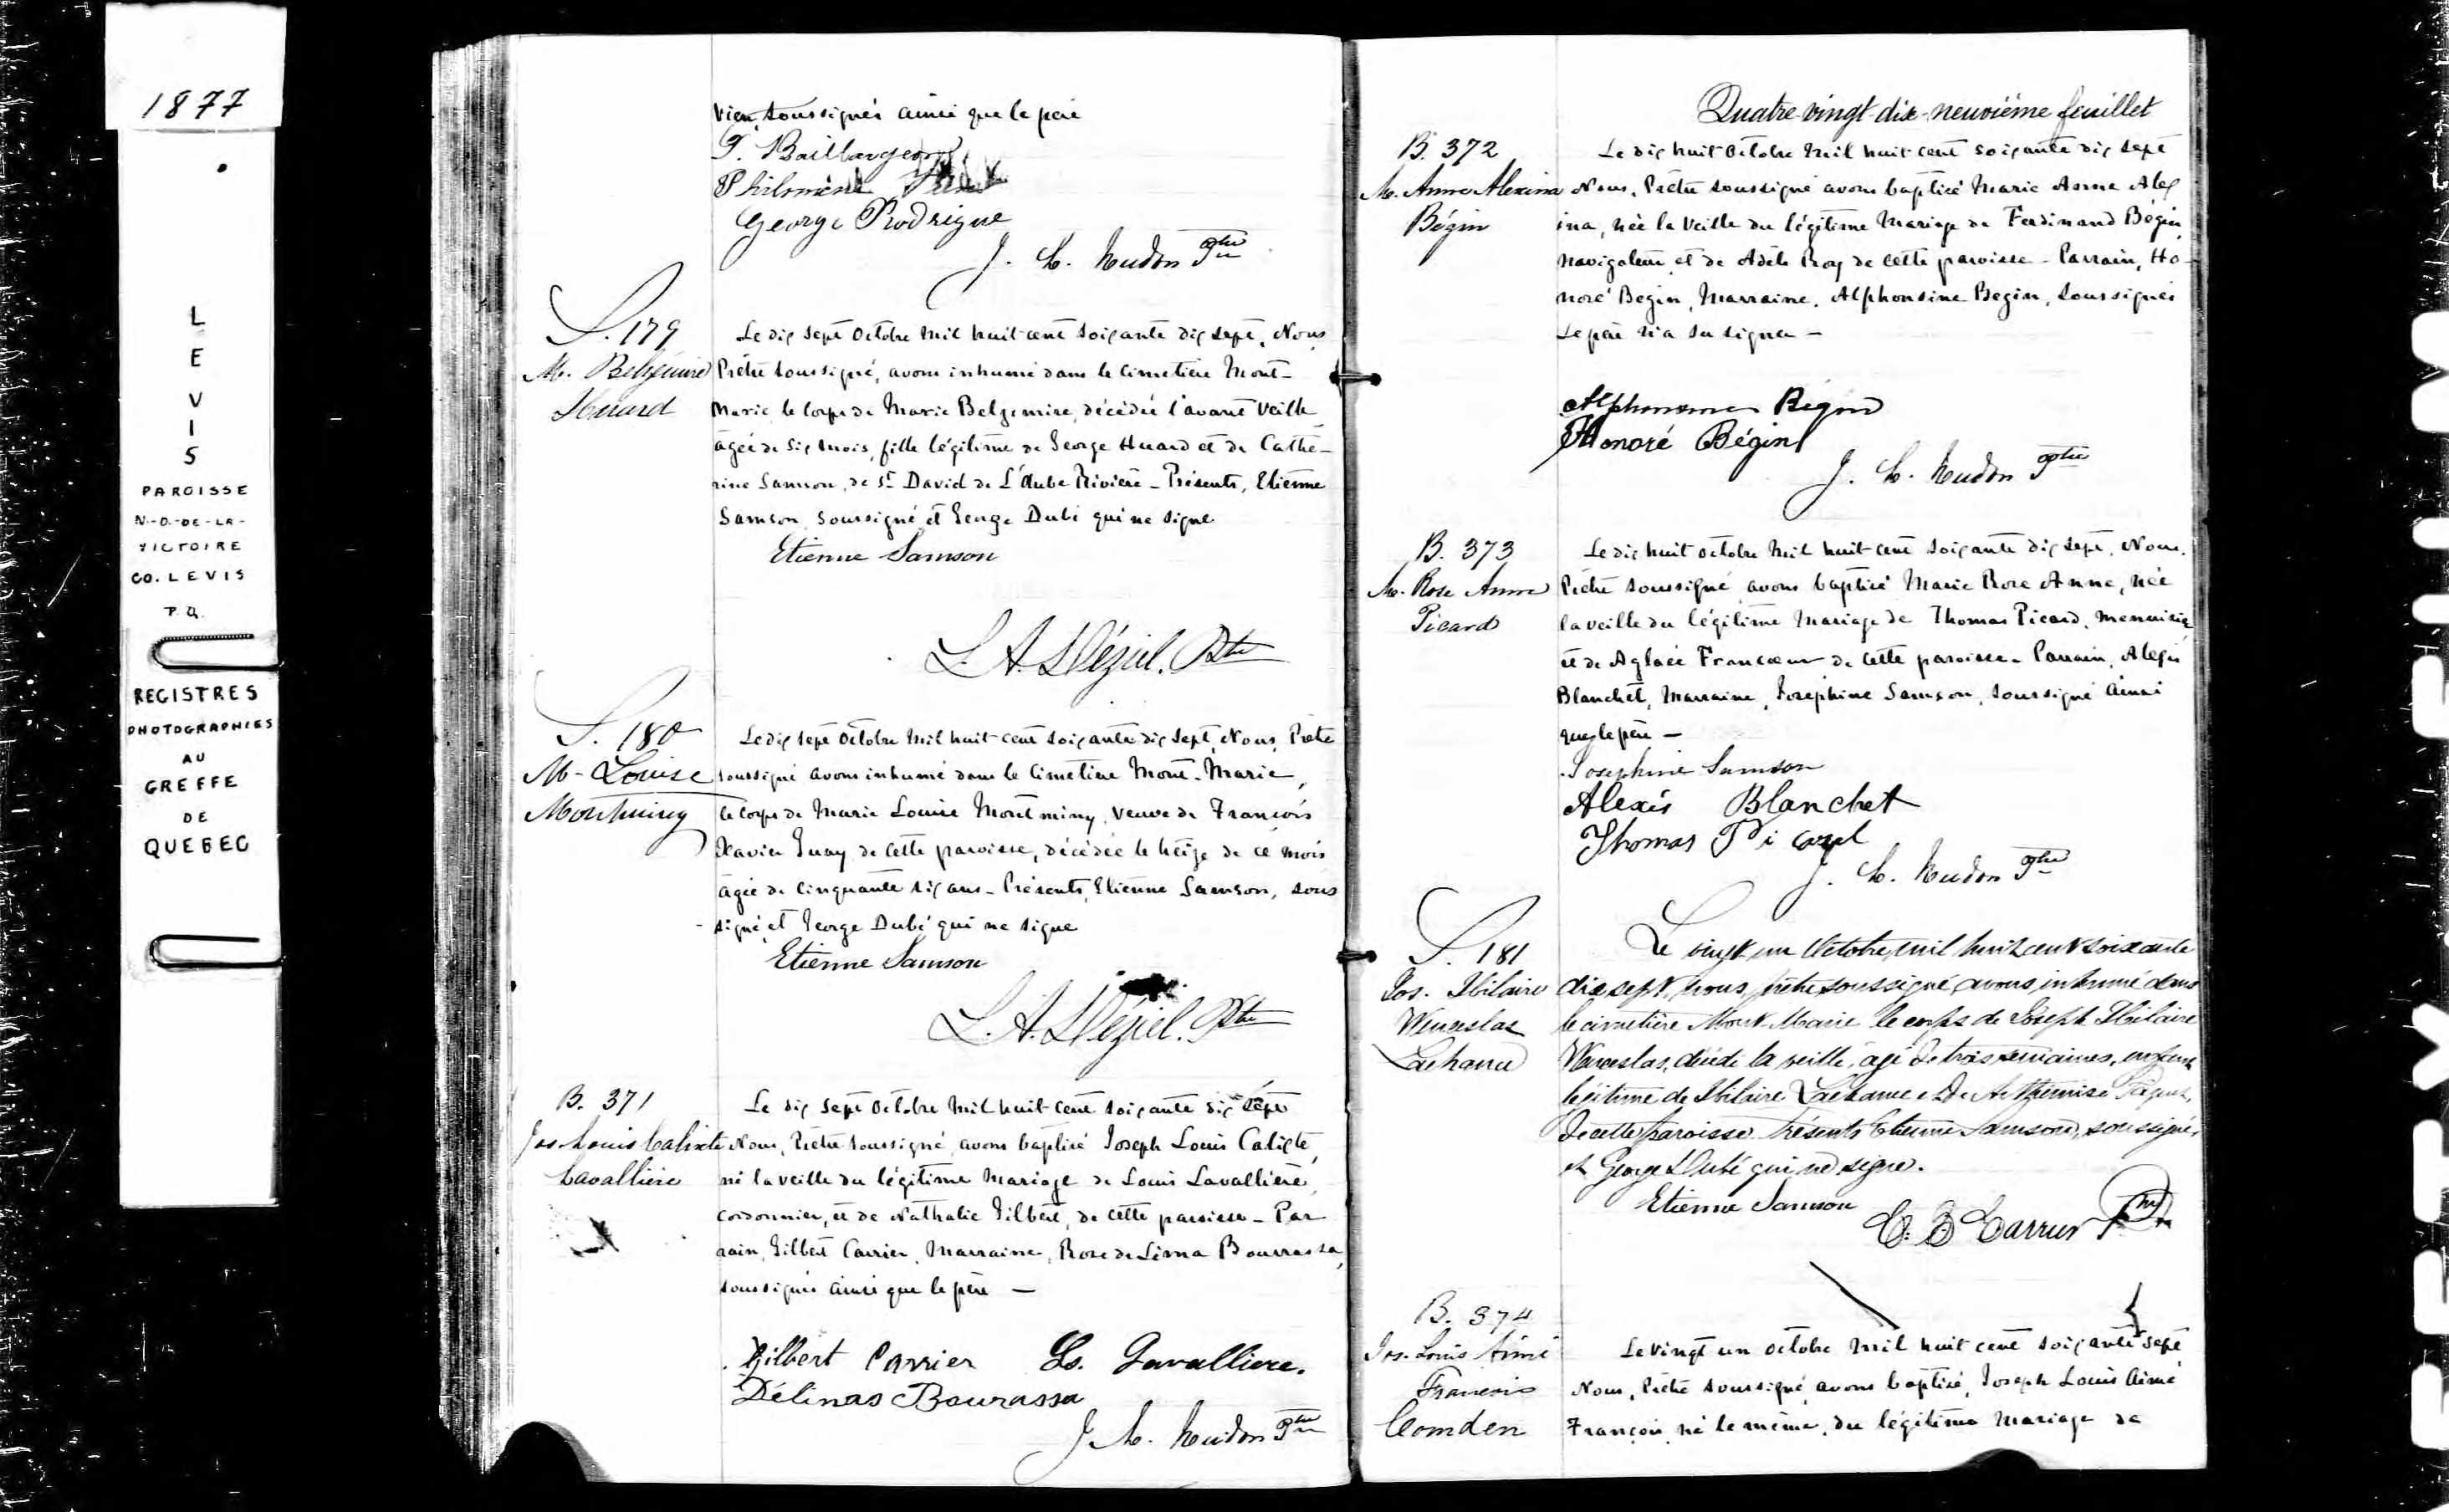 1877
L
E
V
I
S
PAROISSE
N.-D.-DE-LA-
VICTOIRE
CO. LEVIS
P.Q.
REGISTRES
PHOTOGRAPHIES
AU
GREFFE
DE
QUEBEC
vien, soussignés ainsi que le père
Philomène
George Rodrigue
Ptre
S. 179
M. Belzémire
Huard
Le dix sept Octobre mil huit cent soixante dix sept, Nous
Prêtre soussigné, avons inhumé dans le Cimetière Mont-
Marie le Corps de Marie Belzemire, décédée l'avant veille
agée de six mois, fille légitime de George Huard et de Cathe-
rine Samson, de St David de L'Aube Rivière - Présents, Etienne
Samson, soussigné et George Dubé qui ne signe
Etienne Samson
L. A. Déziel. Ptre
S. 180
M - Louise
Montminy
Le dix sept Octobre mil huit cent soixante dix sept, Nous, Prêtre
soussigné avons inhumé dans le Cimetière Mont-Marie,
le corps de Marie Louise Montminy, veuve de François
Xavier Guay de cette paroisse, décédée le treize de ce mois
agée de cinquante six ans - Présents, Etienne Samson, sous
signé et George Dubé qui ne signe
Etienne Samson
L. A. Déziel. Ptre
B. 371
Jos. Louis Calixte
Lavallière
Le dix sept Octobre mil huit cent soixante dix sept
Nous, Prêtre soussigné, avons baptisé Joseph Louis Calixte,
né la veille du légitime mariage de Louis Lavallière,
cordonnier, et de Nathalie Gilbert, de cette paroisse - Par
rain, Gilbert Carrier, Marraine, Rose de Lima Bourrassa,
soussignés ainsi que le père —
Gilbert Carrier Ls. Lavalliere.
Délinas Bourassa
Ptre
Quatre-vingt-dix-neuvième feuillet
B. 372
M. Anne Alexina
Bégin
Le dix huit Octobre mil huit cent soixante dix sept
Nous, Prêtre soussigné avons baptisé Marie Anne Alex
ina, née la veille du légitime mariage de Ferdinand Bégin,
navigateur et de Adèle Roy de cette paroisse - Parrain, Ho-
noré Begin, Marraine, Alphonsine Begin, soussignés
Le père n'a su signer —
Alphonsine Bégin
Honoré Bégin
Ptre
B. 373
M. Rose Anna
Picard
Le dix huit octobre mil huit cent soixante dix sept, Nous,
Prêtre soussigné avons baptisé Marie Rose Anne, née
la veille du légitime mariage de Thomas Picard, menuisier
et de Aglaée Francoeur de cette paroisse - Parrain, Alexis
Blanchet, Marraine, Josephine Samson, soussigné ainsi
que le père —
Josephine Samson
Alexis Blanchet
Thomas Picard
Ptre
S. 181
Jos. Hilaire
Wenceslas
Lachance
Le vingt un Octobre, mil huit cent soixante
dix sept, nous, prêtre soussigné, avons inhumé dans
le cimetière Mont Marie le corps de Joseph Hilaire
Wenceslas, décédé la veille, agé de trois semaines, enfant
légitime de Hilaire Lachance et de Arthemise
de cette paroisse. Présents Etienne Samson, soussigné,
et George Dubé qui ne signe.
Etienne Samson
Ptre
B. 374
Jos. Louis Aimé
Francois
Comden
Le vingt un octobre mil huit cent soixante sept
Nous, Prêtre soussigné, avons baptisé, Joseph Louis Aimé
François, né le même, du légitime mariage de